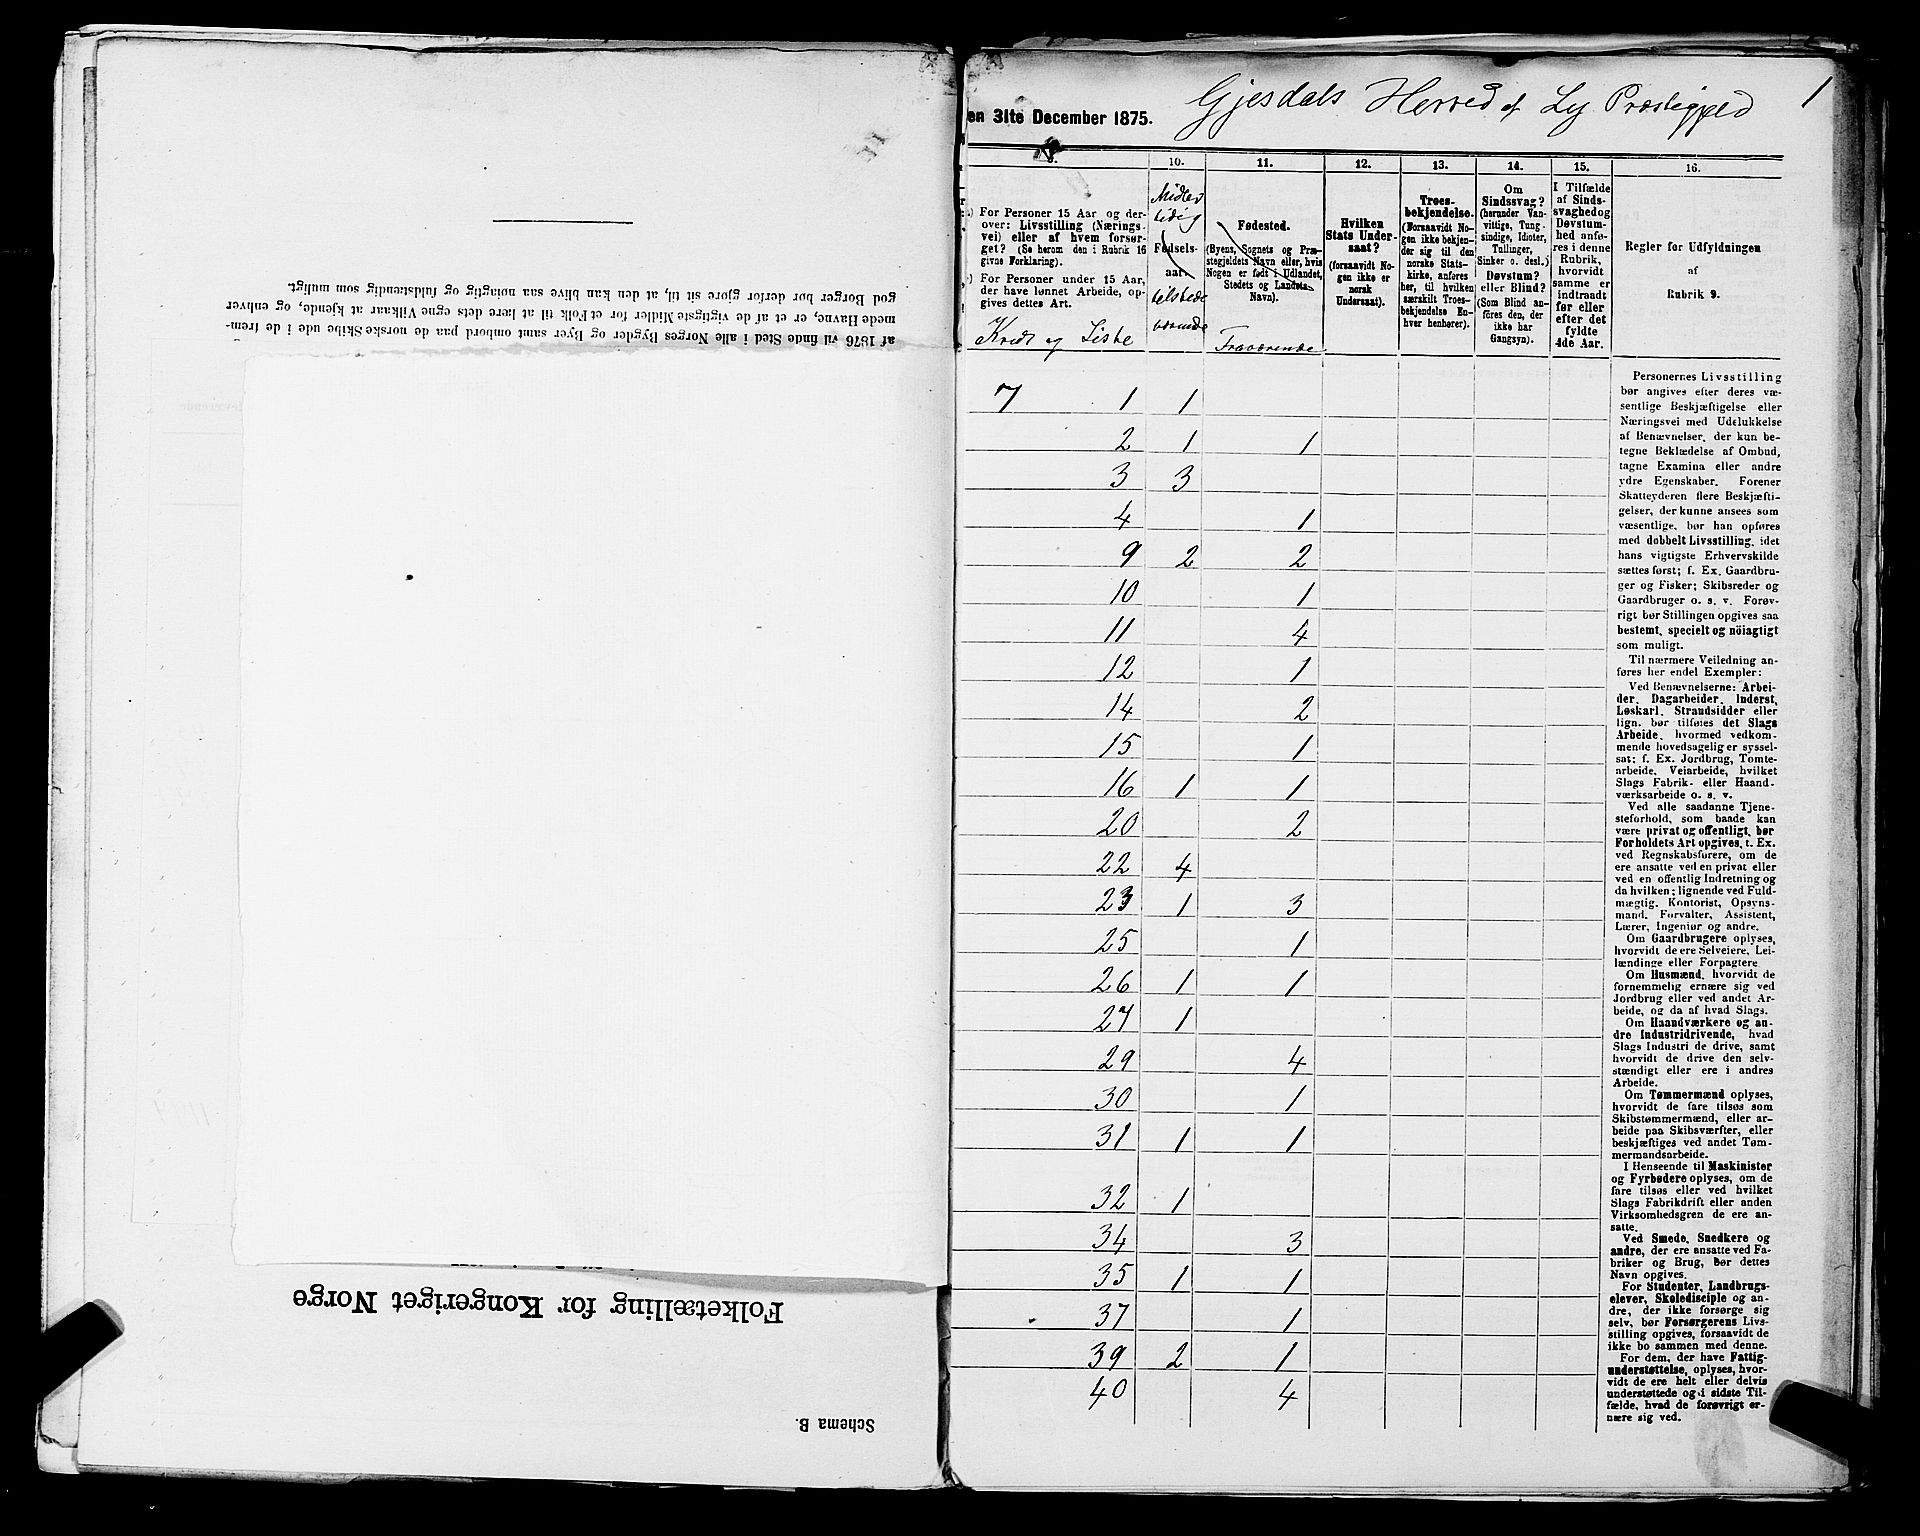 af 1876 vil finde Sted i alle Norges Bygder og Byer samt ombord paa de norske Skibe ude i de frem-
mede Havne, er et af de vigtigste Midler for et Folk til at lære dets egne Vilkaar at kjende, og enhver
god Borger bør derfor gjøre sit til, at den kan blive saa nøiagtig og fuldstændig som muligt.
Folketælling for Kongeriget Norge
Schema B.
en 31te December 1875. Gjesdals Herred af Ly Præstegjeld 1
9. 10. 11. 12. 13. 14. 15. 16.
For Personer 15 Aar og der-
over: Livsstilling (Nærings-
vei) eller af hvem forsør-
get? (Se herom den i Rubrik 16
givne Forklaring).
For Personer under 15 Aar,
der have lønnet Arbeide, op-
gives dettes Art.
Kreds og Liste
Midler
tidig
Fødsels-
aar.
tilstede
værende
Fødested.
(Byens, Sognets og Præ-
stegjeldets Navn eller, hvis
Nogen er født i Udlandet,
Stedets og Landets
Navn).
Fraværende
Hvilken
Stats Under-
saat?
(forsaavidt No-
gen ikke er
norsk
Undersaat).
Troes-
bekjendelse.
(Forsaavidt No-
gen ikke bekjen-
der sig til den
norske Stats-
kirke, anføres
her, til hvilken
særskilt Troes-
bekjendelse En-
hver henhører).
Om
Sindssvag?
(herunder Van-
vittige, Tung-
sindige, Idioter,
Tullinger,
Sinker o. desl.)
Døvstum?
eller Blind?
(Som Blind an-
føres den, der
ikke har
Gangsyn).
I Tilfælde
af Sinds-
svaghed og
Døvstum-
hed anfø-
res i denne
Rubrik,
hvorvidt
samme er
indtraadt
før eller
efter det
fyldte
4de Aar.
Regler for Udfyldningen
af
Rubrik 9.
7 1 1
2 1 1
3 3
4 1
9 2 2
10 1
11 4
12 1
14 2
15 1
16 1 1
20 2
22 4
23 1 3
25 1
26 1 1
27 1
29 4
30 1
31 1 1
32 1
34 3
35 1 1
37 1
39 2 1
40 4
Personernes Livsstilling
bør angives efter deres væ-
sentlige Beskjæftigelse eller
Næringsvei med Udelukkelse
af Benævnelser, der kun be-
tegne Beklædelse af Ombud,
tagne Examina eller andre
ydre Egenskaber. Forener
Skatteyderen flere Beskjæfti-
gelser, der kunne ansees som
væsentlige, bør han opføres
med dobbelt Livsstilling, idet
hans vigtigste Erhvervskilde
sættes først; f. Ex. Gaardbru-
ger og Fisker; Skibsreder og
Gaardbruger o. s. v. Forøv-
rigt bør Stillingen opgives saa
bestemt, specielt og nöiagtigt
som muligt.
Til nærmere Veiledning an-
føres her endel Exempler:
Ved Benævnelserne: Arbei-
der, Dagarbeider, Inderst,
Løskarl, Strandsidder eller
lign. bør tilføies det Slags
Arbeide, hvormed vedkom-
mende hovedsagelig er syssel-
sat; f. Ex. Jordbrug, Tomte-
arbeide, Veiarbeide, hvilket
Slags Fabrik- eller Haand-
værksarbeide o. s. v.
Ved alle saadanne Tjene-
steforhold, som baade kan
være privat og offentligt, bør
Forholdets Art opgives, f. Ex.
ved Regnskabsførere, om de
ere ansatte ved en privat eller
ved en offentlig Indretning og
da hvilken; lignende ved Fuld-
mægtig, Kontorist, Opsyns-
mand, Forvalter, Assistent,
Lærer, Ingeniør og andre.
Om Gaardbrugere oplyses,
hvorvidt de ere Selveiere, Lei-
lændinge eller Forpagtere
Om Husmænd, hvorvidt de
fornemmelig ernære sig ved
Jordbrug eller ved andet Ar-
beide, og da af hvad Slags.
Om Haandværkere og an-
dre Industridrivende, hvad
Slags Industri de drive, samt
hvorvidt de drive den selv-
stændigt eller ere i andres
Arbeide.
Om Tømmermænd oplyses,
hvorvidt de fare tilsøs som
Skibstømmermænd, eller ar-
beide paa Skibsværfter, eller
beskjæftiges ved andet Tøm-
mermandsarbeide.
I Henseende til Maskinister
og Fyrbødere oplyses, om de
fare tilsøs eller ved hvilket
Slags Fabrikdrift eller anden
Virksomhedsgren de ere an-
satte.
Ved Smede, Snedkere og
andre, der ere ansatte ved Fa-
briker og Brug, bør dettes
Navn opgives.
For Studenter, Landbrugs-
elever, Skoledisciple og an-
dre, der ikke forsørge sig
selv, bør Forsørgerens Livs-
stilling opgives, forsaavidt de
ikke bo sammen med denne.
For dem, der have Fattig-
understøttelse, oplyses, hvor-
vidt de ere helt eller delvis
understøttede og i sidste Til-
fælde, hvad de forøvrigt er-
nære sig ved.